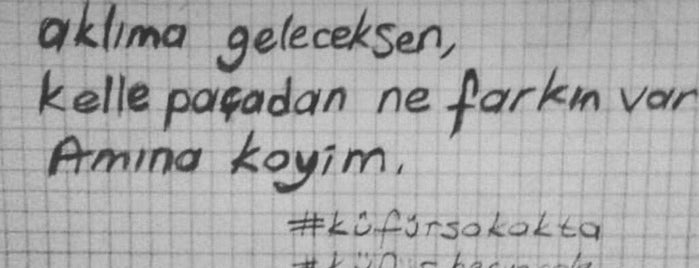 aklıma geleceksen,
kelle paçadan ne farkın var
Amına koyim.
#küfürsokakta